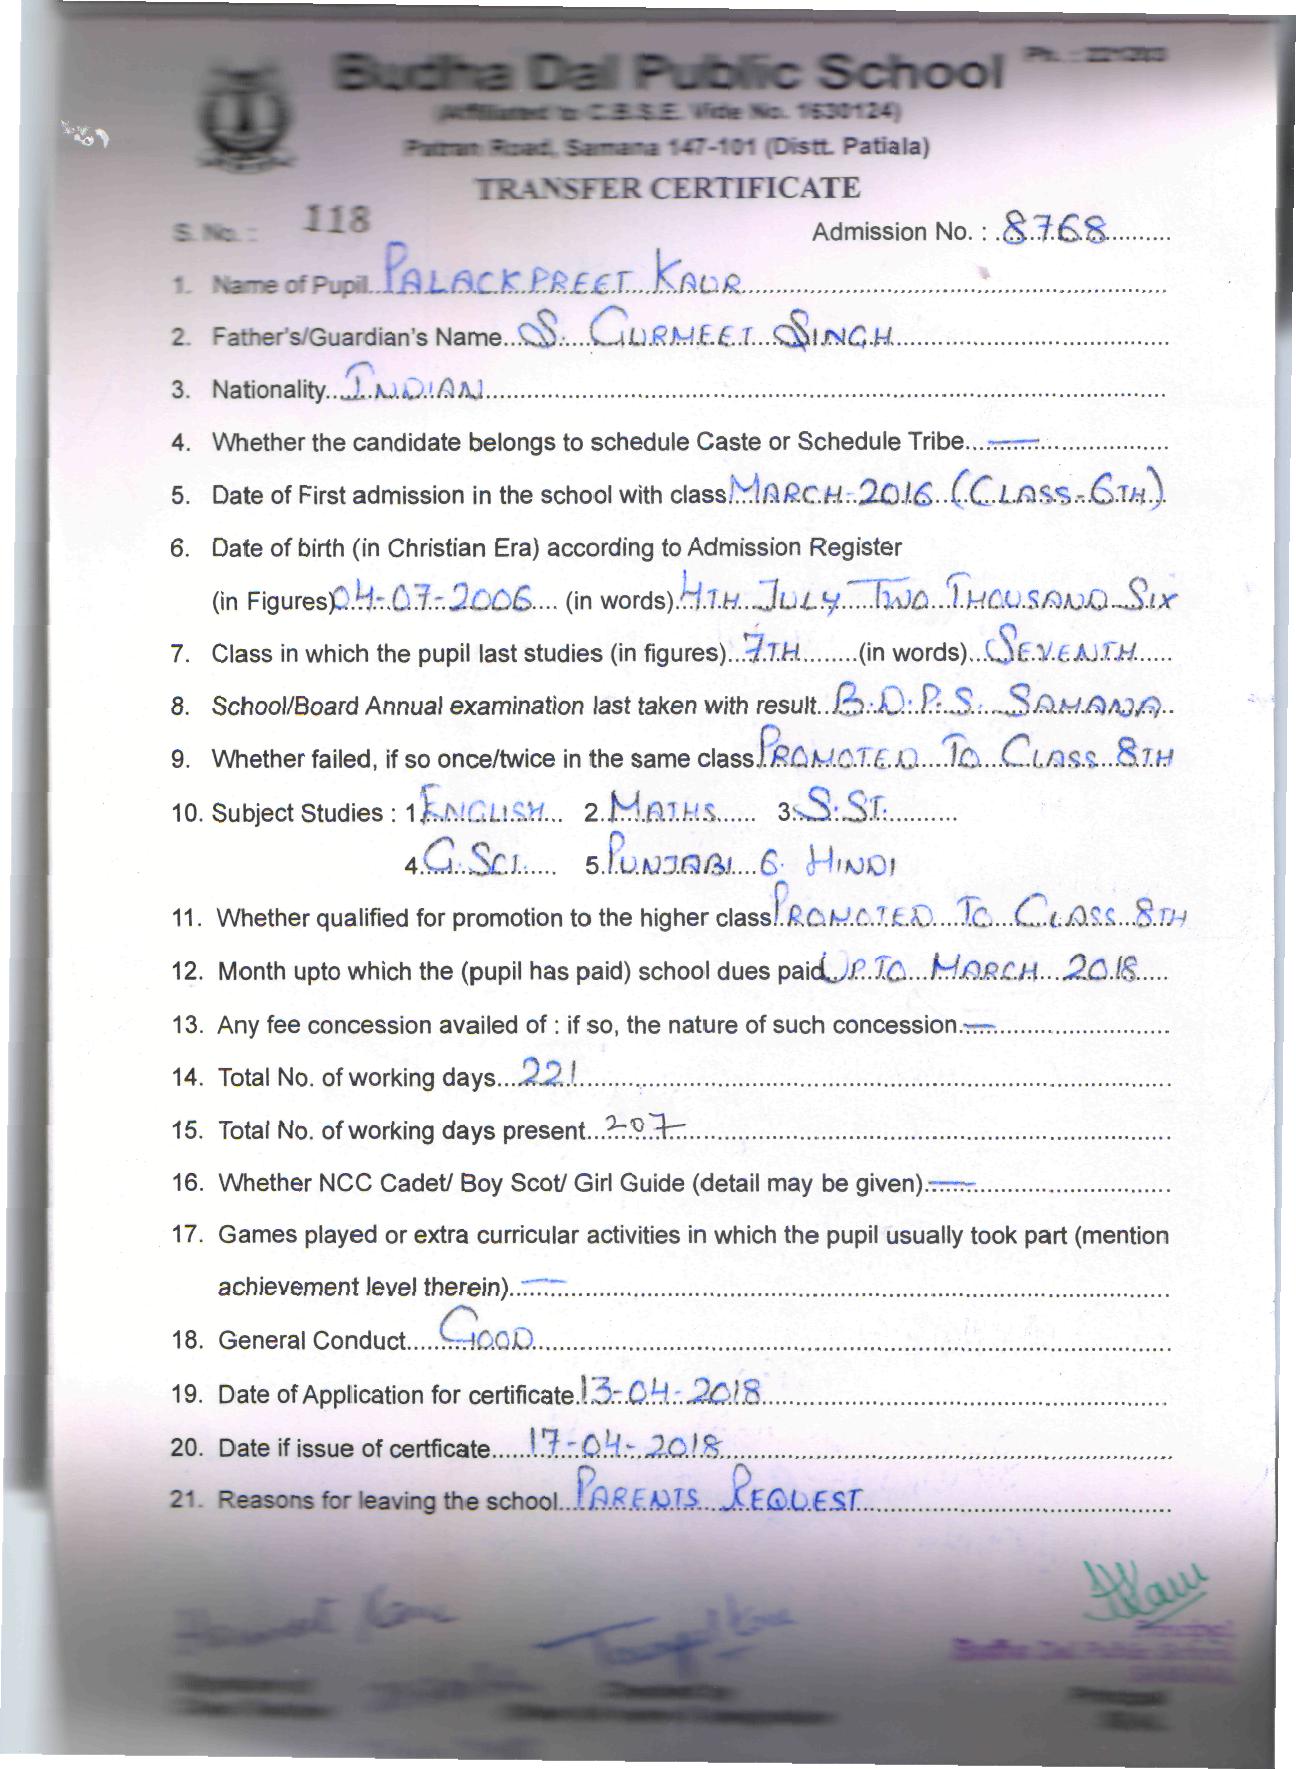 Budha Dal Public School
(Affiliated to C.B.S.E. Vide No. 1630124)
Patran Road, Samana 147-101 (Distt. Patiala)
TRANSFER CERTIFICATE
S. No. : 118
Admission No. : 8768
1. Name of Pupil PALACKPREET KAUR
2. Father's/Guardian's Name S. GURMEET SINGH
3. Nationality INDIAN
4. Whether the candidate belongs to schedule Caste or Schedule Tribe —
5. Date of First admission in the school with class MARCH-2016 (CLASS-6TH)
6. Date of birth (in Christian Era) according to Admission Register
(in Figures) 04-07-2006 (in words) 4TH JULY TWO THOUSAND SIX
7. Class in which the pupil last studies (in figures) 7TH (in words) SEVENTH
8. School/Board Annual examination last taken with result B.D.P.S. SAMANA
9. Whether failed, if so once/twice in the same class PROMOTED TO CLASS 8TH
10. Subject Studies : 1. ENGLISH 2. MATHS 3. S.ST.
4. G.SCI. 5. PUNJABI 6. HINDI
11. Whether qualified for promotion to the higher class PROMOTED TO CLASS 8TH
12. Month upto which the (pupil has paid) school dues paid UPTO MARCH 2018
13. Any fee concession availed of : if so, the nature of such concession —
14. Total No. of working days 221
15. Total No. of working days present 207
16. Whether NCC Cadet/ Boy Scot/ Girl Guide (detail may be given) —
17. Games played or extra curricular activities in which the pupil usually took part (mention
achievement level therein) —
18. General Conduct GOOD
19. Date of Application for certificate 13-04-2018
20. Date if issue of certficate 17-04-2018
21. Reasons for leaving the school PARENTS REQUEST
Principal
Budha Dal Public School
Principal